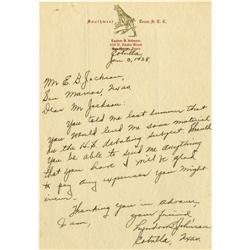 Southwest Texas S. T. C.
Lyndon B. Johnson
Cotulla,
Jan 3, 1928.
Mr E. B. Jackson,
San Marcos, Texas
Dear Mr Jackson:
You told me last summer that
you would send me some material
on the H.S. debating subject. Would
you be able to send me anything
that you have? I will be glad
to pay any expenses you might
incur.
Thanking you in advance
I am,
your friend
Lyndon Johnson
Cotulla, Texas